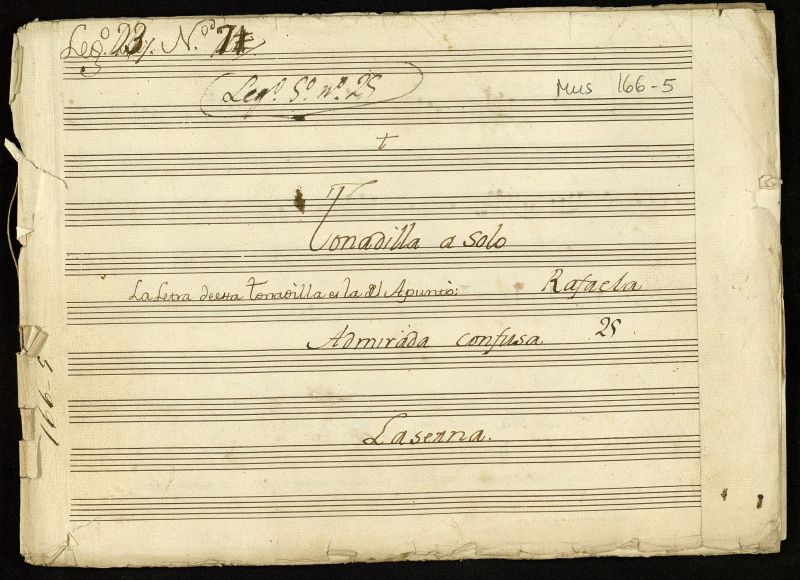 Leg.º 23 N.º 71
Leg.º 5.º n.º 25
Mus 166-5
Tonadilla a Solo
La Letra de esta tonadilla es la del Apunto:
Rafaela
Admirada confusa 25
Laserna.
166-5